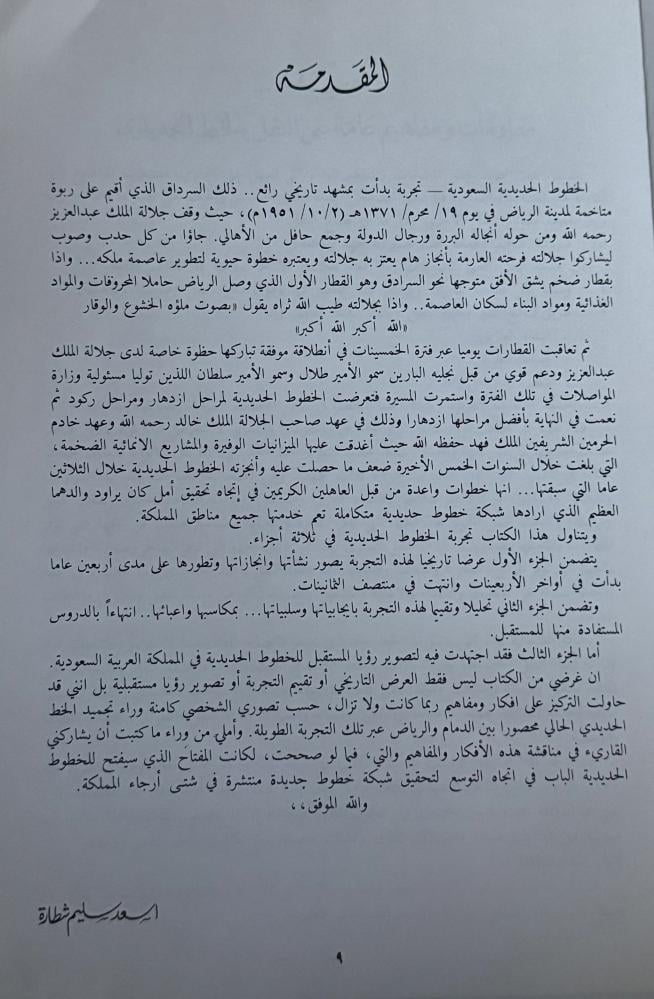 المقدمة
الخطوط الحديدية السعودية ــ تجربة بدأت بمشهد تاريخي رائع.. ذلك السرداق الذي أقيم على ربوة
متاخمة لمدينة الرياض في يوم ١٩/ محرم/ ١٣٧١هـ (١٩٥١/١٠/٢م)، حيث وقف جلالة الملك عبدالعزيز
رحمه الله ومن حوله أنجاله البررة ورجال الدولة وجمع حافل من الأهالي. جاؤا من كل حدب وصوب
ليشاركوا جلالته فرحته العارمة بأنجاز هام يعتز به جلالته ويعتبره خطوة حيوية لتطوير عاصمة ملكه... واذا
بقطار ضخم يشق الأفق متوجها نحو السرادق وهو القطار الأول الذي وصل الرياض حاملا المحروقات والمواد
الغذائية ومواد البناء لسكان العاصمة.. واذا بجلالته طيب الله ثراه يقول «بصوت ملؤه الخشوع والوقار
«الله أكبر الله أكبر»
ثم تعاقبت القطارات يوميا عبر فترة الخمسينات في أنطلاقة موفقة تباركها حظوة خاصة لدى جلالة الملك
عبدالعزيز ودعم قوي من قبل نجليه البارين سمو الأمير طلال وسمو الأمير سلطان اللذين توليا مسئولية وزارة
المواصلات في تلك الفترة واستمرت المسيرة فتعرضت الخطوط الحديدية لمراحل ازدهار ومراحل ركود ثم
نعمت في النهاية بأفضل مراحلها ازدهارا وذلك في عهد صاحب الجلالة الملك خالد رحمه الله وعهد خادم
الحرمين الشريفين الملك فهد حفظه الله حيث أغدقت عليها الميزانيات الوفيرة والمشاريع الانمائية الضخمة،
التي بلغت خلال السنوات الخمس الأخيرة ضعف ما حصلت عليه وأنجزته الخطوط الحديدية خلال الثلاثين
عاما التي سبقتها... انها خطوات واعدة من قبل العاهلين الكريمين في إتجاه تحقيق أمل كان يراود والدهما
العظيم الذي ارادها شبكة خطوط حديدية متكاملة تعم خدمتها جميع مناطق المملكة.
ويتناول هذا الكتاب تجربة الخطوط الحديدية في ثلاثة أجزاء.
يتضمن الجزء الأول عرضا تاريخيا لهذه التجربة يصور نشأتها وانجازاتها وتطورها على مدى أربعين عاما
بدأت في أواخر الأربعينات وانتهت في منتصف الثمانينات.
وتضمن الجزء الثاني تحليلا وتقييما لهذه التجربة بايجابياتها وسلبياتها... بمكاسبها واعبائها.. انتهاءاً بالدروس
المستفادة منها للمستقبل.
أما الجزء الثالث فقد اجتهدت فيه لتصوير رؤيا المستقبل للخطوط الحديدية في المملكة العربية السعودية.
ان غرضي من الكتاب ليس فقط العرض التاريخي أو تقييم التجربة أو تصوير رؤيا مستقبلية بل انني قد
حاولت التركيز على افكار ومفاهيم ربما كانت ولا تزال، حسب تصوري الشخصي كامنة وراء تجميد الخط
الحديدي الحالي محصورا بين الدمام والرياض عبر تلك التجربة الطويلة. وأملي من وراء ما كتبت أن يشاركني
القاريء في مناقشة هذه الأفكار والمفاهيم والتي، فيما لو صححت، لكانت المفتاح الذي سيفتح للخطوط
الحديدية الباب في اتجاه التوسع لتحقيق شبكة خطوط جديدة منتشرة في شتى أرجاء المملكة.
والله الموفق،،
اسعد سليم شطارة
٩